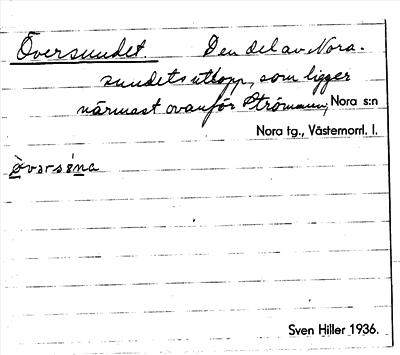 Översundet. Den del av Nora-
sundets utlopp, som ligger
närmast ovanför Strömmen, Nora s:n
Nora tg., Västernorrl. l.
Sven Hiller 1936.